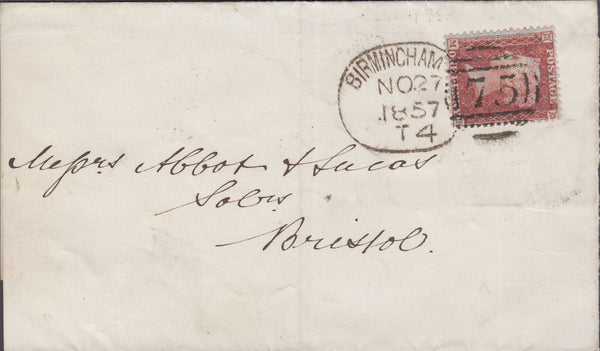 BIRMINGHAM
NO27
1857
T4
75
POSTAGE
Messrs Abbot & Lucas
Solrs
Bristol.